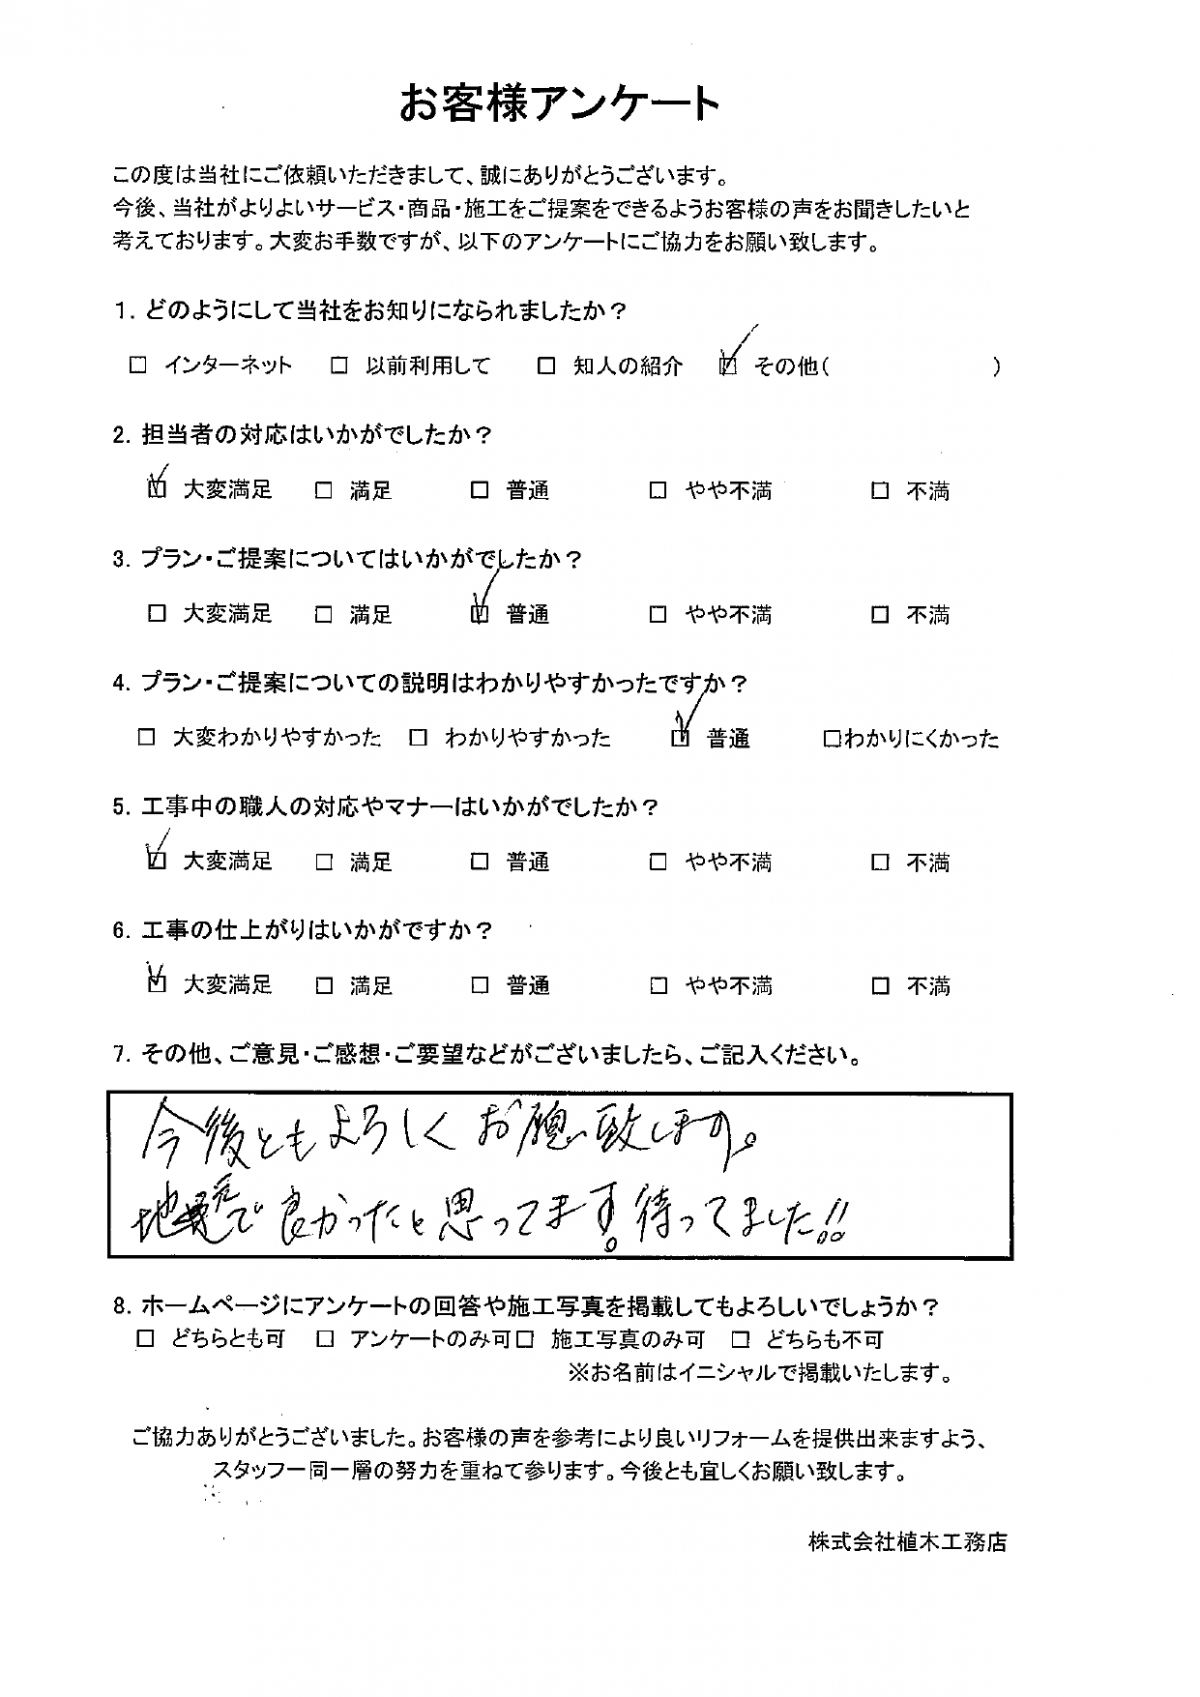 お客様アンケート
この度は当社にご依頼いただきまして、誠にありがとうございます。
今後、当社がよりよいサービス・商品・施工をご提案をできるようお客様の声をお聞きしたいと
考えております。大変お手数ですが、以下のアンケートにご協力をお願い致します。
1. どのようにして当社をお知りになられましたか？
□ インターネット □ 以前利用して □ 知人の紹介 ☑ その他( )
2. 担当者の対応はいかがでしたか？
☑ 大変満足 □ 満足 □ 普通 □ やや不満 □ 不満
3. プラン・ご提案についてはいかがでしたか？
□ 大変満足 □ 満足 ☑ 普通 □ やや不満 □ 不満
4. プラン・ご提案についての説明はわかりやすかったですか？
□ 大変わかりやすかった □ わかりやすかった ☑ 普通 □わかりにくかった
5. 工事中の職人の対応やマナーはいかがでしたか？
☑ 大変満足 □ 満足 □ 普通 □ やや不満 □ 不満
6. 工事の仕上がりはいかがですか？
☑ 大変満足 □ 満足 □ 普通 □ やや不満 □ 不満
7. その他、ご意見・ご感想・ご要望などがございましたら、ご記入ください。
今後ともよろしくお願い致します。
地元で良かったと思ってます。待ってました!!
8. ホームページにアンケートの回答や施工写真を掲載してもよろしいでしょうか？
□ どちらとも可 □ アンケートのみ可□ 施工写真のみ可 □ どちらも不可
※お名前はイニシャルで掲載いたします。
ご協力ありがとうございました。お客様の声を参考により良いリフォームを提供出来ますよう、
スタッフ一同一層の努力を重ねて参ります。今後とも宜しくお願い致します。
株式会社植木工務店